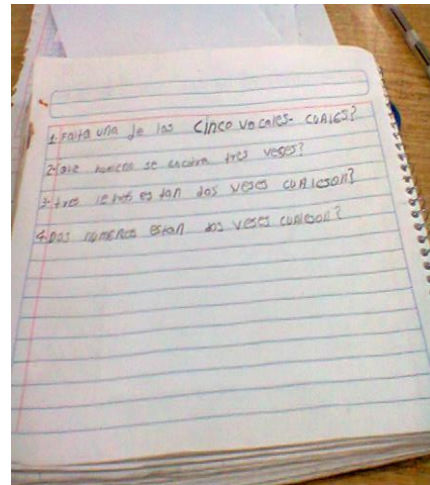 1. Falta una de las cinco vocales- cuales?
2- que numeros se encotra tres veses?
3- tres letras estan dos veses cualeson?
4. Dos numeros estan dos veses cualeson?